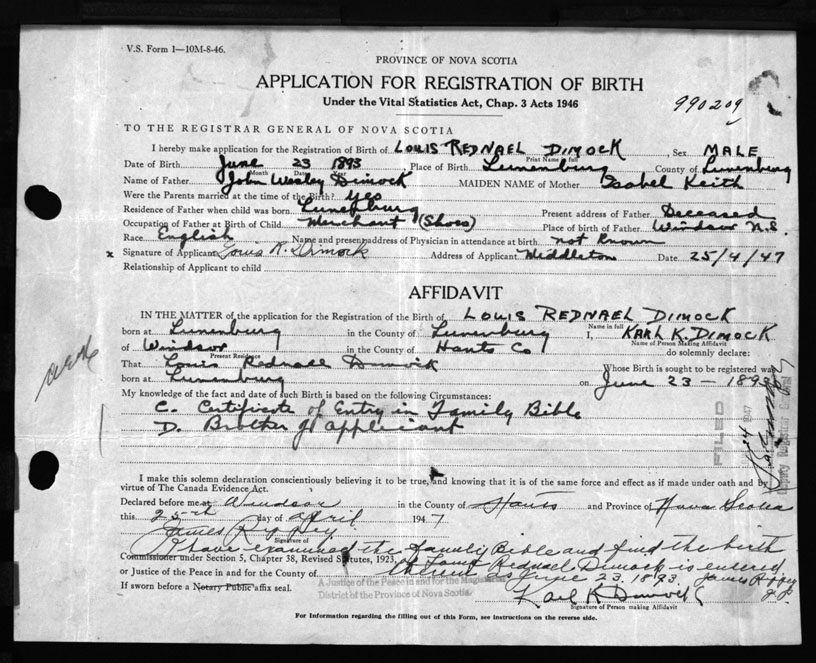 V.S. Form 1—10M-8-46.
PROVINCE OF NOVA SCOTIA
APPLICATION FOR REGISTRATION OF BIRTH
Under the Vital Statistics Act, Chap. 3 Acts 1946
990209
TO THE REGISTRAR GENERAL OF NOVA SCOTIA
I hereby make application for the Registration of Birth of LOUIS REDNAEL DIMOCK, Sex MALE
Print Name in full
Date of Birth June 23 1893, Place of Birth Lunenburg County of Lunenburg
Month Date Year
Name of Father John Wesley Dimock MAIDEN NAME of Mother Isabel Keith
Were the Parents married at the time of the Birth? Yes
Residence of Father when child was born Lunenburg Present address of Father Deceased
Occupation of Father at Birth of Child Merchant (Shoes) Place of birth of Father Windsor N.S.
Race English Name and present address of Physician in attendance at birth not known
x Signature of Applicant Louis R. Dimock Address of Applicant Middleton Date 25/4/47
Relationship of Applicant to child
AFFIDAVIT
IN THE MATTER of the application for the Registration of the Birth of LOUIS REDNAEL DIMOCK
Name in full
born at Lunenburg in the County of Lunenburg I, KARL K. DIMOCK
Name of Person Making Affidavit
of Windsor in the County of Hants Co do solemnly declare:
Present Residence
That Louis Rednael Dimock Whose Birth is sought to be registered was
born at Lunenburg on June 23 - 1893
My knowledge of the fact and date of such Birth is based on the following Circumstances:
C. Certificate of Entry in Family Bible
D. Brother of applicant
FILED
Deputy Registrar General
I make this solemn declaration conscientiously believing it to be true, and knowing that it is of the same force and effect as if made under oath and by
virtue of The Canada Evidence Act.
Declared before me at Windsor in the County of Hants and Province of Nova Scotia
this 25th day of April 1947
James Rippey
Signature of
I have examined the family Bible and find the birth
Commissioner under Section 5, Chapter 38, Revised Statutes, 1923, of Louis Rednael Dimock is entered
or Justice of the Peace in and for the County of June 23. 1893. James Rippey
J.P.
A Justice of the Peace in and for the Magisterial
District of the Province of Nova Scotia
If sworn before a Notary Public affix seal. Karl K Dimock
Signature of Person making Affidavit
For Information regarding the filling out of this Form, see instructions on the reverse side.